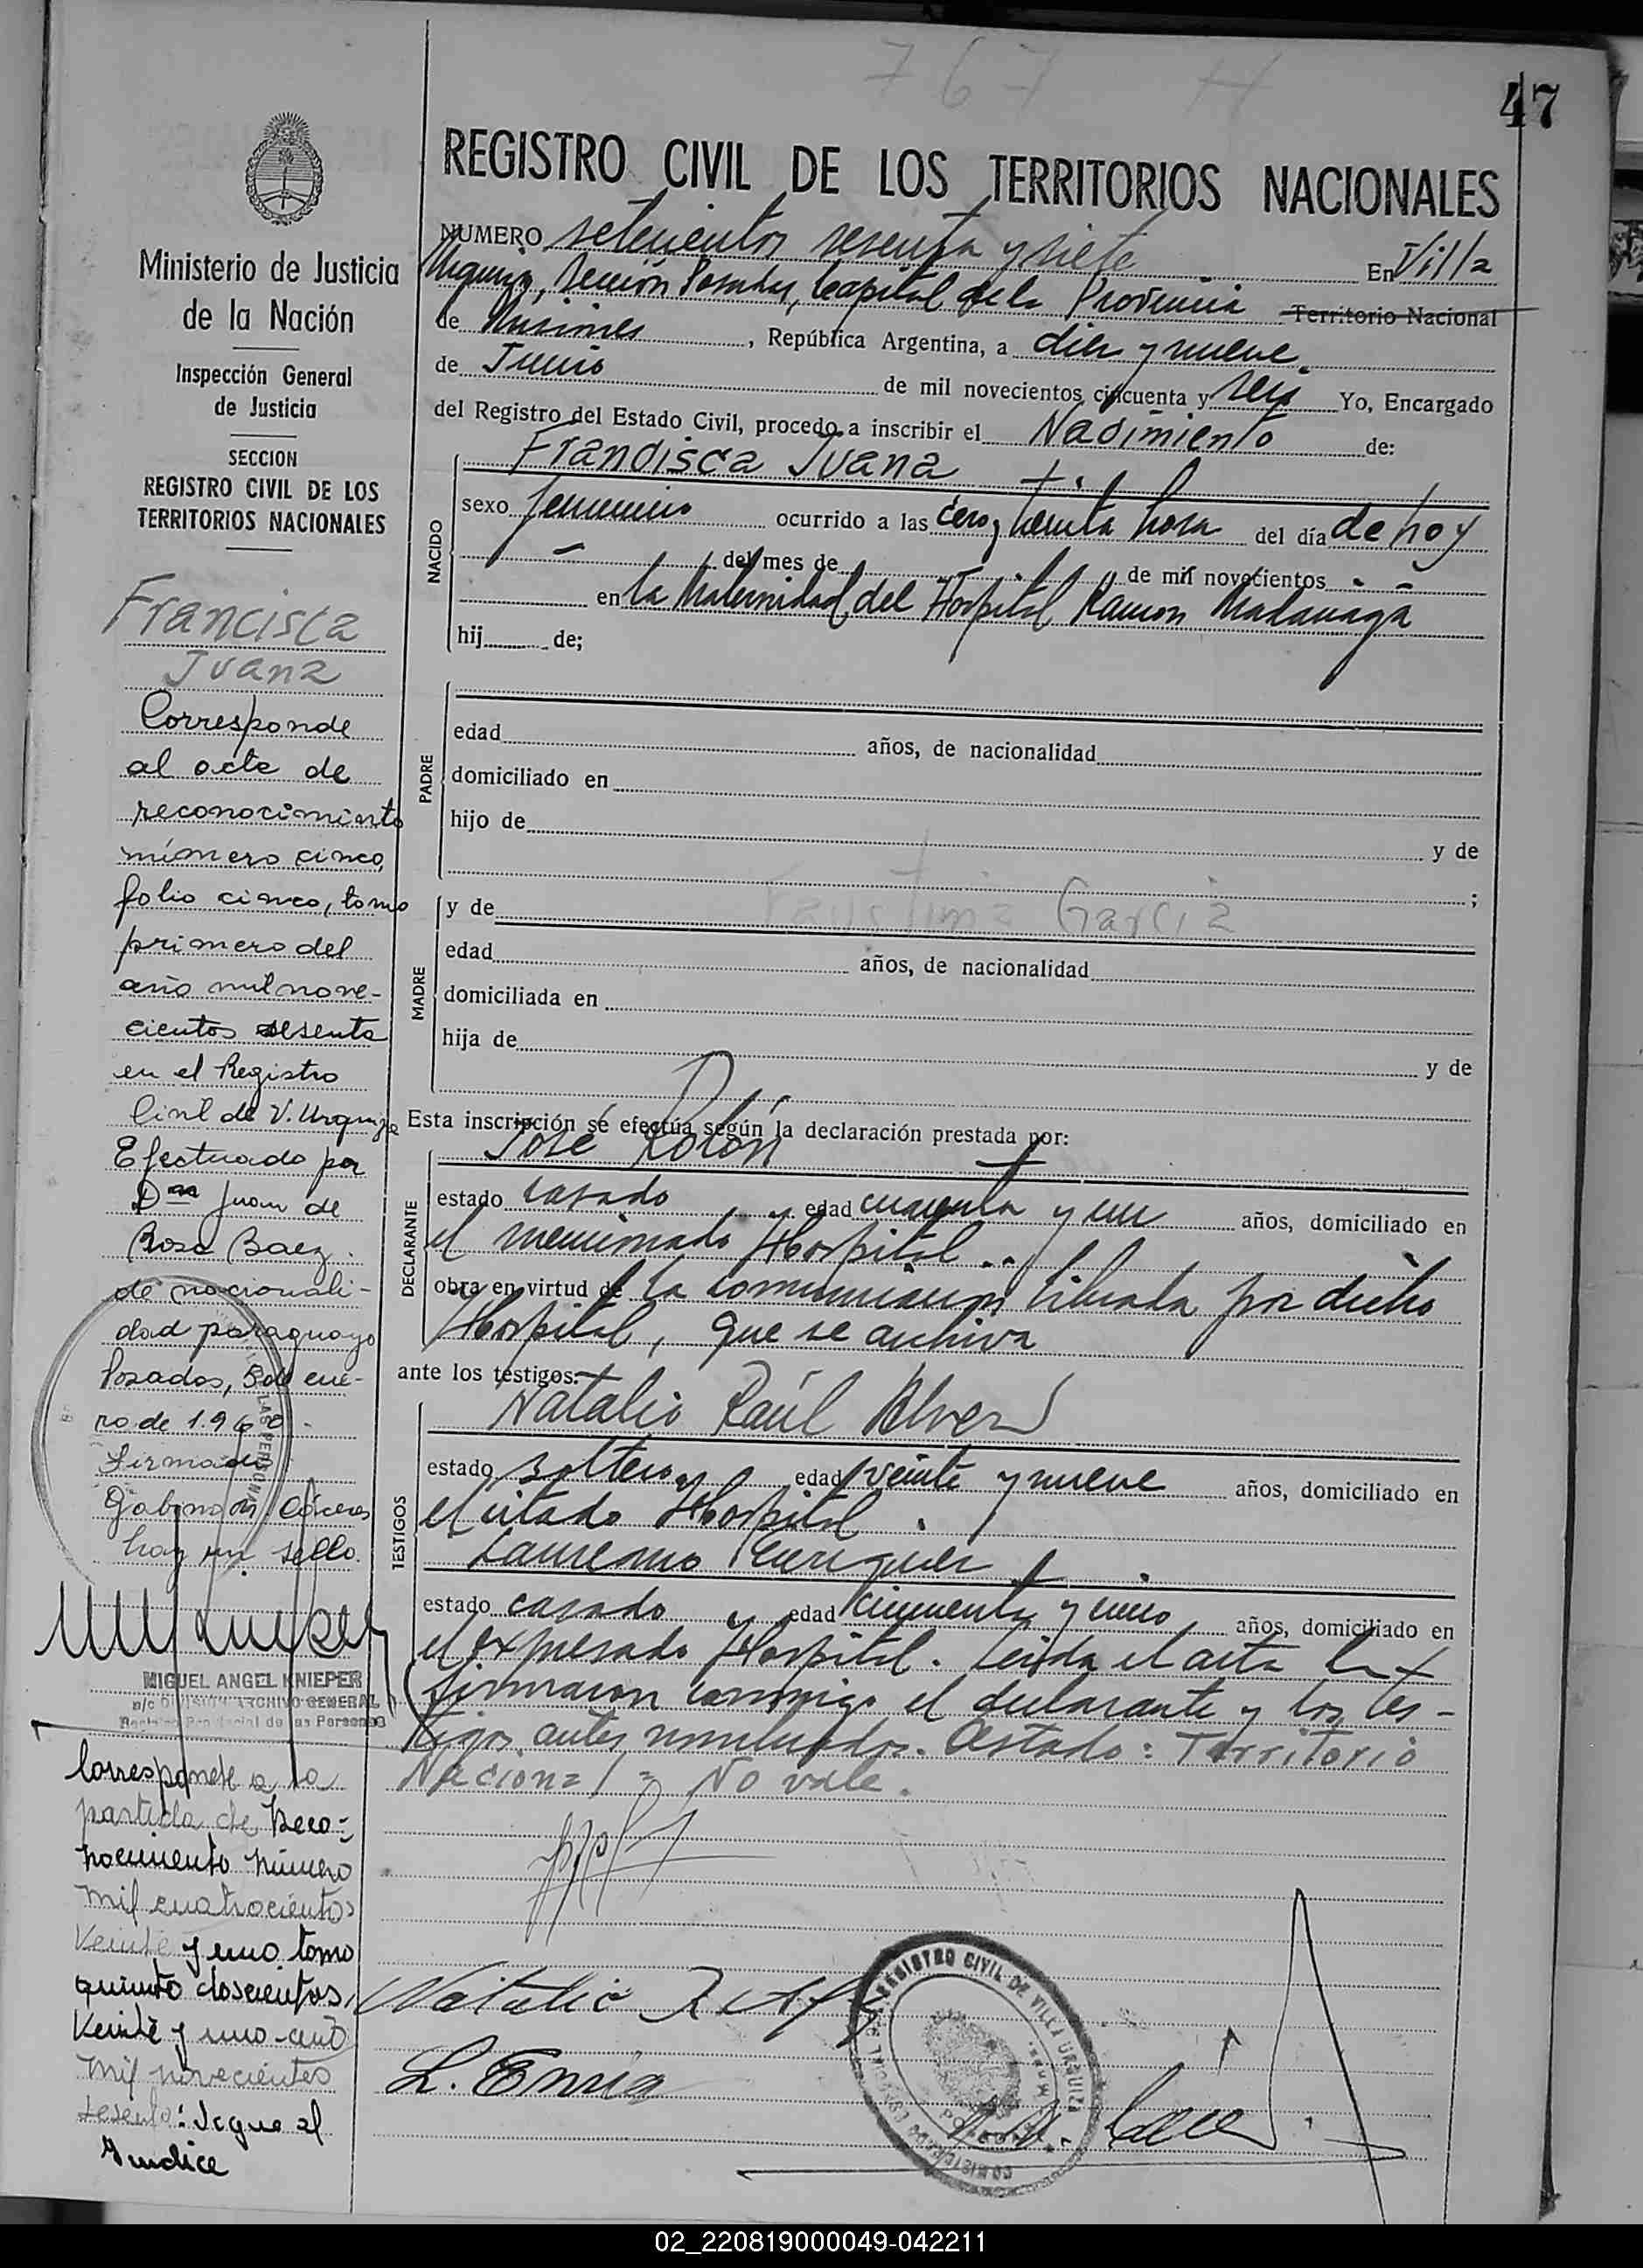 767 H
47
REGISTRO CIVIL DE LOS TERRITORIOS NACIONALES
Ministerio de Justicia
de la Nación
Inspección General
de Justicia
SECCION
REGISTRO CIVIL DE LOS
TERRITORIOS NACIONALES
Francisca
Juana
Corresponde
al acta de
reconocimiento
número cinco,
folio cinco, tomo
primero del
año mil nove-
cientos sesenta
en el Registro
Civil de V. Urquiza
Efectuado por
Dn Juan de
Rosa Baez.
de nacionali-
dad paraguayo
Posadas, 5 de ene-
ro de 1.960 -
Firmado
Gabino Cáceres
hay un sello.
MIGUEL ANGEL KNIEPER
a/c DIVISION ARCHIVO GENERAL
Registro Provincial de las Personas
Corresponde a la
partida de Reco-
nocimiento número
mil cuatrocientos
veinte y uno tomo
quinto doscientos
veinte y uno - año
mil novecientos
sesenta: Sigue al
Indice
NUMERO setecientos sesenta y siete En Villa
Urquiza, Sección Posadas, Capital de la Provincia Territorio Nacional
de Misiones, República Argentina, a diez y nueve
de Junio de mil novecientos cincuenta y seis Yo, Encargado
del Registro del Estado Civil, procedo a inscribir el Nacimiento de:
NACIDO
Francisca Juana
sexo femenino ocurrido a las cero y treinta hora del día de hoy
- del mes de de mil novecientos - -
en la Maternidad del Hospital Ramon Madariaga
hij de;
PADRE
edad años, de nacionalidad
domiciliado en
hijo de y de
;
MADRE
y de Faustina Garcia
edad años, de nacionalidad
domiciliada en
hija de y de
Esta inscripción se efectúa según la declaración prestada por:
DECLARANTE
José Rolón
estado casado edad cuarenta y un años, domiciliado en
el mencionado Hospital..
obra en virtud de la comunicacion librada por dicho
Hospital, que se archiva
ante los testigos:
TESTIGOS
Natalio Raúl Alvez
estado soltero edad veinte y nueve años, domiciliado en
el citado Hospital.
Laureano Enriquez
estado casado y edad cincuenta y cinco años, domiciliado en
el expresado Hospital. Leida el acta la
firmaron conmigo el declarante y los tes-
tigos antes nombrados. Testado: Territorio
Nacional = No vale.
Natalio R
L. Enriq
REGISTRO CIVIL DE VILLA URQUIZA
02_220819000049-042211